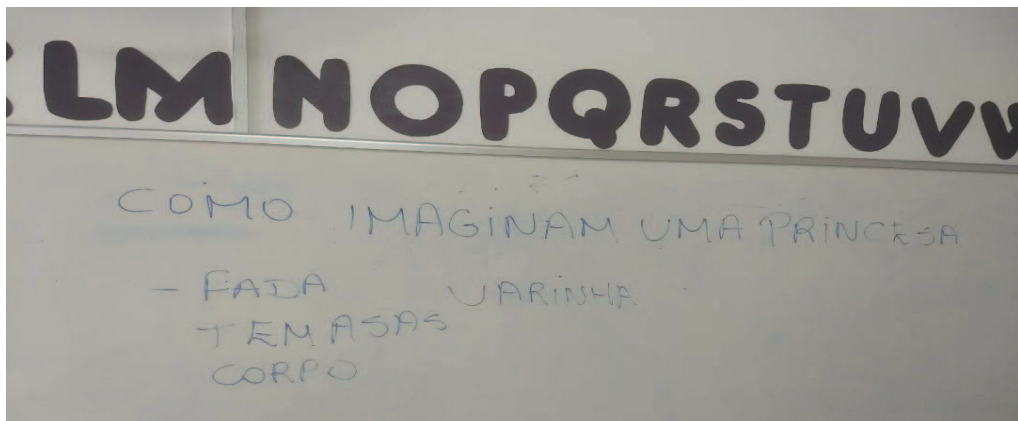 LMNOPQRSTUVW
COMO IMAGINAM UMA PRINCESA
- FADA VARINHA
TEM ASAS
CORPO